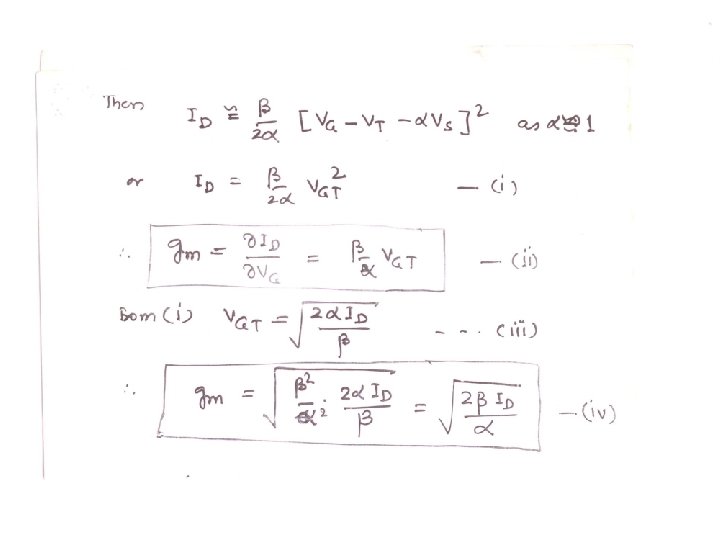 Then I_D ≅ β/2α [V_G – V_T – αV_S]² as α≅1
or I_D = β/2α V_GT² — (i)
∴ g_m = ∂I_D/∂V_G = β/α V_GT — (ii)
From (i) V_GT = √(2αI_D/β) - - . (iii)
∴ g_m = √(β²/α² · 2αI_D/β) = √(2βI_D/α) — (iv)